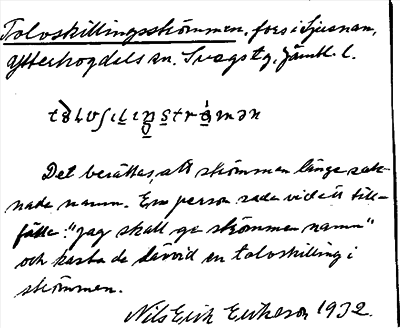 Tolvskillingsströmmen, fors i Ljusnan,
Ytterhogdals sn. Svegs tg, Jämtl. l.
Det berättas, att strömmen länge sak-
nade namn. En person sade vid ett till-
fälle: "Jag skall ge strömmen namn"
och kasta de därvid en tolvskilling i
strömmen.
Nils Erik Eriksson 1932.